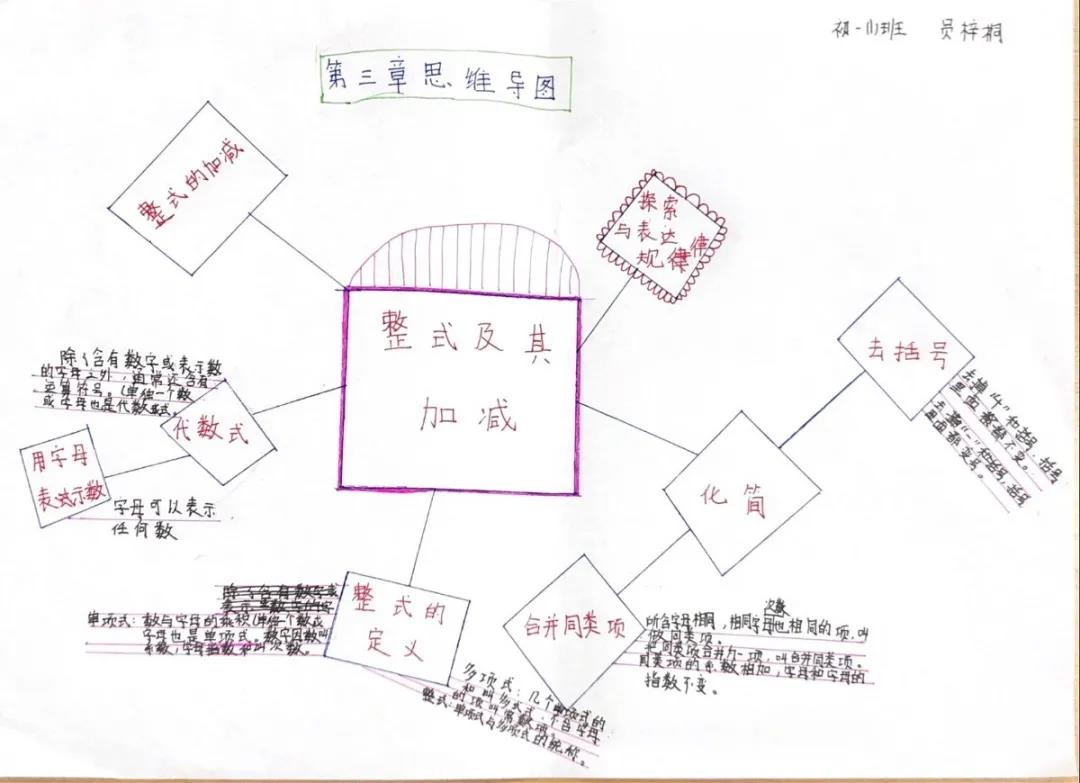 初一(1)班 员梓桐
第三章思维导图
整式的加减
探索
与表达
规律
整式及其
加减
去括号
去掉“+”和括号,括号
里面数都不变。
去掉“-”和括号,括号
里面都变号。
除了含有数字或表示数
的字母之外,通常还含有
运算符号。(单独一个数
或字母也是代数式。
代数式
用字母
表示数
字母可以表示
任何数
化简
合并同类项
次数
所含字母相同,相同字母也相同的项,叫
做同类项。
把同类项合并为一项,叫合并同类项。
同类项的系数相加,字母和字母的
指数不变。
整式的
定义
除了含有数字或
单项式:数与字母的乘积(单独一个数或
字母也是单项式。数字因数叫
系数,字母指数和叫次数。
多项式:几个单项式的
和叫多项式,不含字母
的项叫常数项。
整式:单项式与多项式的统称。